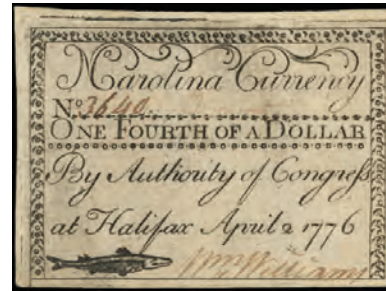 N Carolina Currency
No. 3640
ONE FOURTH OF A DOLLAR
By Authority of Congress
at Halifax April 2 1776
Wm Williams